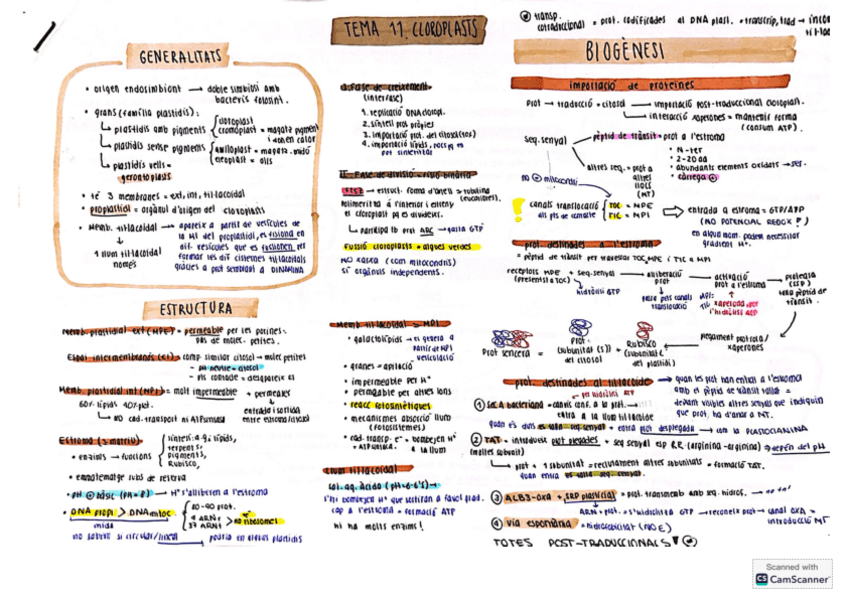 TEMA 11. CLOROPLASTS
GENERALITATS
• origen endosimbiont → doble simbiosi amb
bacteris fotosint.
• grans (família plastidis):
plastidis amb pigments
cloroplast
cromoplast = magatz pigment
i donen color
plastidis sense pigments
amiloplast = magatz. midó
oleoplast = olis
plastidis vells =
gerontoplasts
• té 3 membranes = ext, int, til·lacoidal
• proplastidi = orgànul d'origen del cloroplasts
• Memb. til·lacoidal → apareix a partir de vesícules de
la MI del proplastidi, es fusiona en
dif. vesícules que es fusionen per
formar les dif cisternes til·lacoidals
gràcies a prot semblant a DINAMINA
1 llum til·lacoidal
només
ESTRUCTURA
Memb. plastidial ext (MPE) = permeable per les porines.
pas de molec. petites.
Espai intermembranós (ei) = comp. similar citosol → molec petites
- pH neutre = citosol
Memb. plastidial int (MPI) = molt impermeable + permeases
60% lípids 40% pot.
entrada i sortida
entre estroma/citosol
NO cad. transport ni ATPsintasa
Estroma (= matriu)
• enzims → funcions
síntesi a.g. lípids,
pigments,
Rubisco,
• emmagatzematge subs de reserva
• pH bàsic (pH=8) → H+ s'alliberen a l'estroma
• DNA propi > DNA mitoc.
mida
4 ARNr
no ribosomes
no sabem si circular/lineal
I. Fase de creixement
(interfase)
1. replicació DNA clorop.
2. síntesi prot pròpies
3. importació prot. del citosol (TOC)
4. importació lípids,
II. Fase de divisió = fissió binària
FTSZ → estruct. forma d'anell ≈ tubulina
(eucariotes).
polimeritza a l'interior i estreny
el cloroplast pq es divideixi.
participa tb prot ARC → gasta GTP
FUSSIÓ cloroplasts = algues verdes
NO xarxa (com mitocondris)
sí orgànuls independents.
Memb til·lacoidal ≃ MPI
• galactolípids → es genera a
partir de MPI
vesiculació
• granes = apilació
• impermeable per H+
• permeable per altres ions
• reacc fotosintètiques
• mecanismes absorció llum
(fotosistemes)
• cad. transp. e- → bombejen H+
a la llum
• ATPsintasa
Llum til·lacoidal
sol. aq. àcida (pH=6-6'5)
cap a l'estroma = formació ATP
hi ha molts enzims!
transp.
cotraduccional = prot. codificades al DNA plast. = transcrip, trad →
BIOGÈNESI
importació de proteïnes
Prot → traducció = citosol → importació post-traduccional cloroplast.
interacció xaperones = mantenir forma
(consum ATP).
seq. senyal
pèptid de trànsit = prot a l'estroma
• N-ter
• 2-20 aa
• abundants elements oxidats → ser.
• càrrega ⊕
altres seq. = prot a
altres
llocs
(MT)
no mitocondri
! canals translocació
als pts de contacte
TOC = MPE
TIC = MPI
entrada a estroma = GTP/ATP
(NO POTENCIAL REDOX)
en algun nom. poden necessitar
gradient H+.
prot. destinades a l'estroma
= pèptid de trànsit per travessar TOC MPE i TIC a MPI
receptors MPE + seq. senyal → alliberació → activació → proteasa
(presents a TOC)
prot a l'estroma
(SPP)
talla pèptid de
trànsit.
hidròlisi GTP
passa pels canals
translocació
MPI:
xaperona per
l'hidròlisi ATP
plegament prot x/o/
xaperones
Prot sencera = Prot (subunitat (s)) + Rubisco (subunitat L
del citosol
del plastidi)
prot. destinades al til·lacoide → quan les prot han entrat a l'estroma
amb el pèptid de trànsit tallat =
deixant visibles altres senyals que indiquin
que prot. ha d'anar a MT.
① Sec A bacteriana = canvis conf. a la prot. → per hidròlisi ATP
entra a la llum til·lacoide
quan és dins es talla seq. senyal + entra prot desplegada → com la PLASTOCIANINA
② TAT = introdueix prot plegades + seq senyal esp RR (arginina-arginina) → depèn del pH
prot + 1 subunitat = reclutament altres subunitats = formació TAT.
quan entra es talla seq. senyal.
③ ALB3-oxa + SRP plastidial = prot. transmemb amb seq. hidròf.
ARN + prot. = s'hidrolitza GTP → reconeix prot → canal OXA =
introducció MT
④ Via espontània = hidrofobicitat
TOTES POST-TRADUCCIONALS
Scanned with
CS CamScanner